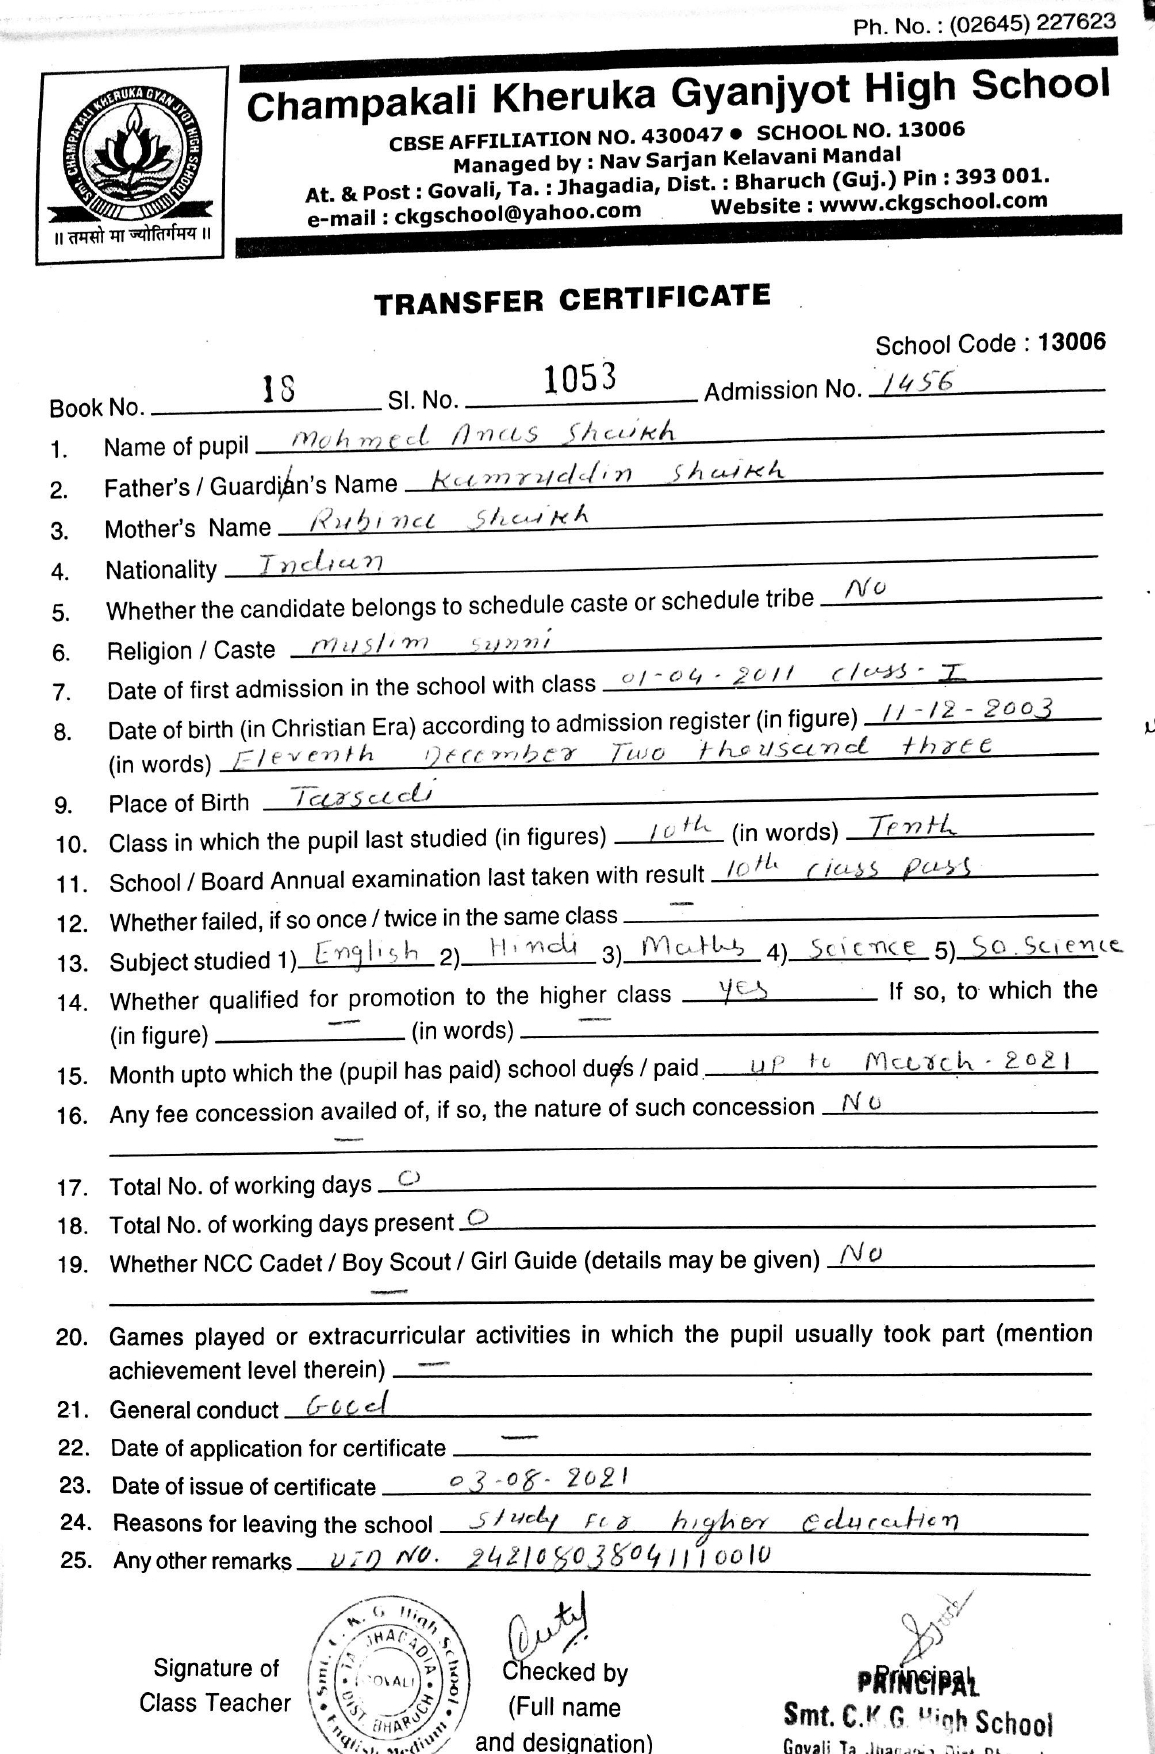 Ph. No. : (02645) 227623
SMT. CHAMPAKALI KHERUKA GYAN JYOT HIGH SCHOOL
॥ तमसो मा ज्योतिर्गमय ॥
Champakali Kheruka Gyanjyot High School
CBSE AFFILIATION NO. 430047 ● SCHOOL NO. 13006
Managed by : Nav Sarjan Kelavani Mandal
At. & Post : Govali, Ta. : Jhagadia, Dist. : Bharuch (Guj.) Pin : 393 001.
e-mail : ckgschool@yahoo.com Website : www.ckgschool.com
TRANSFER CERTIFICATE
School Code : 13006
Book No. 18 Sl. No. 1053 Admission No. 1456
1. Name of pupil Mohmed Anas Shaikh
2. Father's / Guardian's Name Kamruddin Shaikh
3. Mother's Name Rubina Shaikh
4. Nationality Indian
5. Whether the candidate belongs to schedule caste or schedule tribe No
6. Religion / Caste Muslim Sunni
7. Date of first admission in the school with class 01-04-2011 class-I
8. Date of birth (in Christian Era) according to admission register (in figure) 11-12-2003
(in words) Eleventh December Two thousand three
9. Place of Birth Tarsadi
10. Class in which the pupil last studied (in figures) 10th (in words) Tenth
11. School / Board Annual examination last taken with result 10th class pass
12. Whether failed, if so once / twice in the same class —
13. Subject studied 1) English 2) Hindi 3) Maths 4) Science 5) So.Science
14. Whether qualified for promotion to the higher class yes If so, to which the
(in figure) — (in words) —
15. Month upto which the (pupil has paid) school dues / paid up to March-2021
16. Any fee concession availed of, if so, the nature of such concession No
—
17. Total No. of working days 0
18. Total No. of working days present 0
19. Whether NCC Cadet / Boy Scout / Girl Guide (details may be given) No
—
20. Games played or extracurricular activities in which the pupil usually took part (mention
achievement level therein) —
21. General conduct Good
22. Date of application for certificate —
23. Date of issue of certificate 03-08-2021
24. Reasons for leaving the school Study for higher education
25. Any other remarks UID NO. 242108038041110010
Smt. C. K. G High School
English Medium
TA. JHAGADIA
GOVALI
DIST. BHARUCH
Signature of
Class Teacher
Checked by
(Full name
and designation)
PRINCIPAL
Smt. C.K.G. High School
Govali Ta